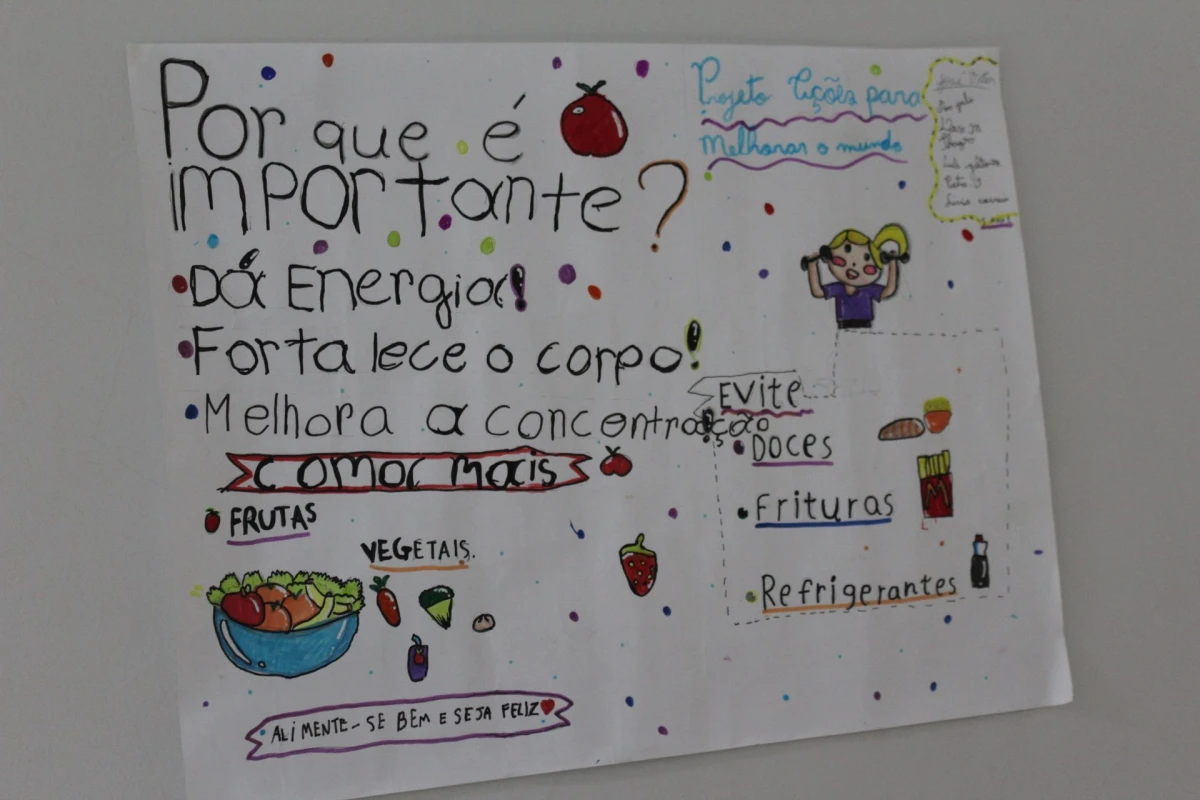 Por que é
importante?
Projeto lições para
Melhorar o mundo
Dá Energia!
Fortalece o corpo!
Melhora a concentração!
comor mais
FRUTAS
VEGETAIS.
ALIMENTE-SE BEM E SEJA FELIZ
EVite
DOCES
Frituras
Refrigerantes
M